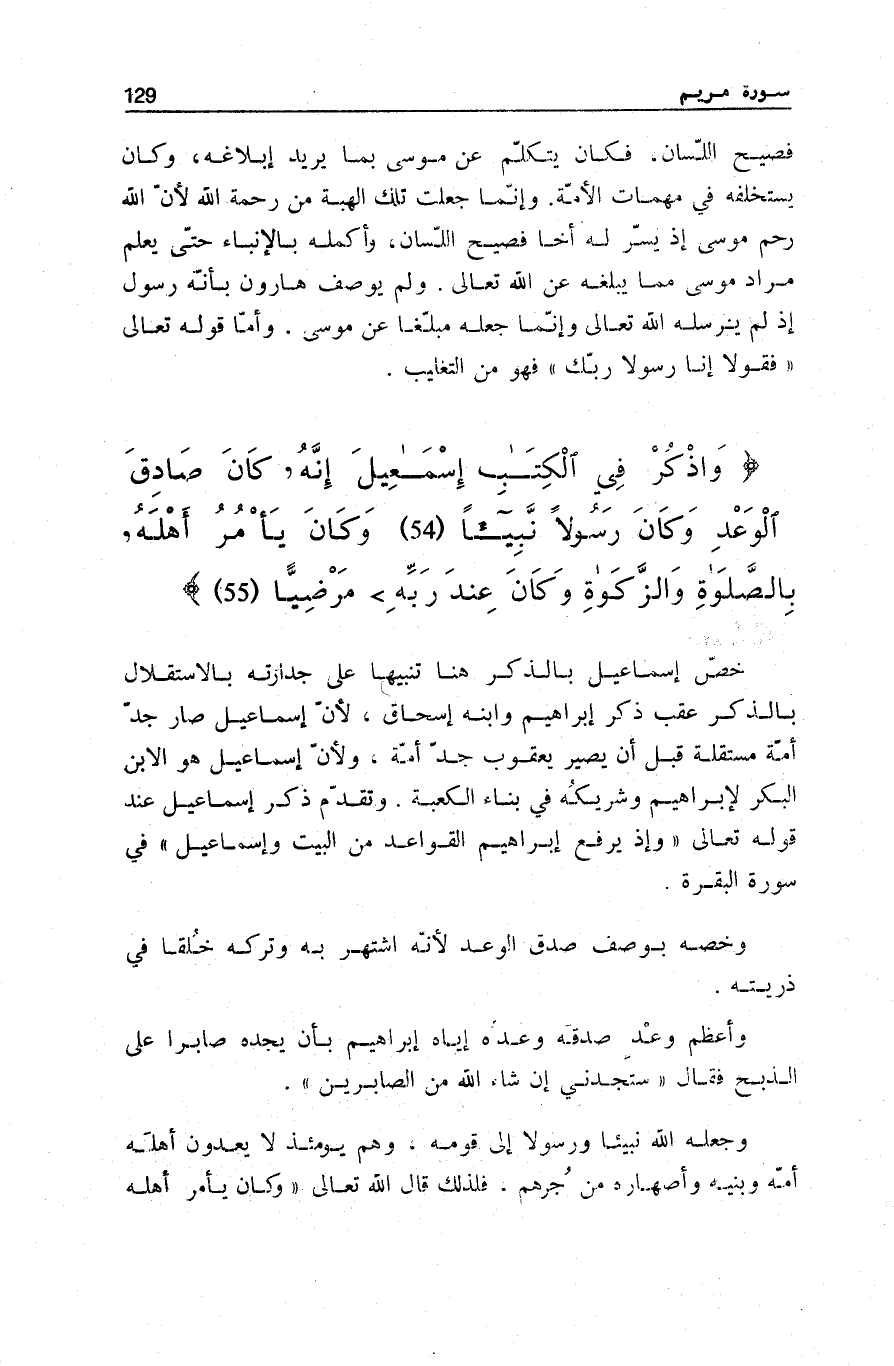 سورة مريم 129
فصيح اللّسان. فكان يتكلّم عن موسى بما يريد إبلاغه، وكان
يستخلفه في مهمات الأمّة. وإنّما جعلت تلك الهبة من رحمة الله لأنّ الله
رحم موسى إذ يسّر له أخا فصيح اللّسان، وأكمله بالإنباء حتّى يعلم
مراد موسى مما يبلغه عن الله تعالى. ولم يوصف هارون بأنّه رسول
إذ لم يرسله الله تعالى وإنّما جعله مبلّغا عن موسى. وأمّا قوله تعالى
« فقولا إنا رسولا ربّك » فهو من التغليب.
﴿ وَاذْكُرْ فِي ٱلْكِتَـٰبِ إِسْمَـٰعِيلَ إِنَّهُۥ كَانَ صَادِقَ
ٱلْوَعْدِ وَكَانَ رَسُولاً نَّبِيٓـئًا (54) وَكَانَ يَأْمُرُ أَهْلَهُۥ
بِالصَّلَوٰةِ وَالزَّكَوٰةِ وَكَانَ عِندَ رَبِّهِۦ مَرْضِيًّا (55) ﴾
خصّ إسماعيل بالذكر هنا تنبيها على جدارته بالاستقلال
بالذكر عقب ذكر إبراهيم وابنه إسحاق، لأنّ إسماعيل صار جدّ
أمّة مستقلة قبل أن يصير يعقوب جدّ أمّة، ولأنّ إسماعيل هو الابن
البكر لإبراهيم وشريكُه في بناء الكعبة. وتقدّم ذكر إسماعيل عند
قوله تعالى « وإذ يرفع إبراهيم القواعد من البيت وإسماعيل » في
سورة البقرة.
وخصه بوصف صدق الوعد لأنّه اشتهر به وتركه خُلقا في
ذريته.
وأعظم وعْدٍ صدقَه وعدُه إياه إبراهيم بأن يجده صابرا على
الذبح فقال « ستجدني إن شاء الله من الصابرين ».
وجعله الله نبيئا ورسولا إلى قومه، وهم يومئذ لا يعدون أهلَه
أمّه وبنيه وأصهاره من جُرهم. فلذلك قال الله تعالى « وكان يأمر أهله